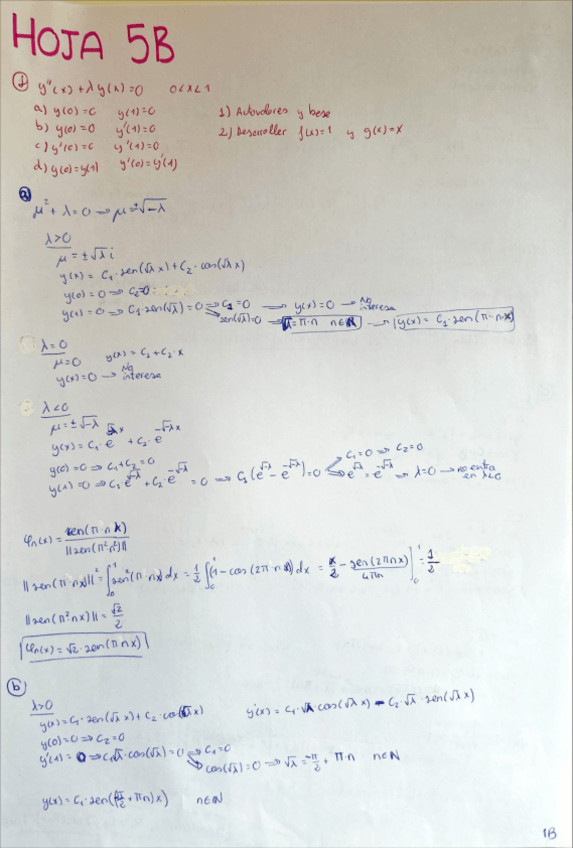 HOJA 5B
① y''(x) + λ y(x) = 0   0<x<1
a) y(0)=0   y(1)=0   1) Autovalores y base
b) y(0)=0   y'(1)=0   2) Desarrollar f(x)=1 y g(x)=x
c) y'(0)=0   y'(1)=0
d) y(0)=y(1)   y'(0)=y'(1)
ⓐ
μ² + λ = 0 ⇒ μ = ±√-λ
λ>0
μ = ±√λ i
y(x) = C₁·sen(√λ x) + C₂·cos(√λ x)
y(0)=0 ⇒ C₂=0
y(1)=0 ⇒ C₁·sen(√λ)=0 ⇒ C₁=0 → y(x)=0 → No interesa
sen(√λ)=0 → √λ=π·n n∈N → y(x) = C₁·sen(π·n·x)
λ=0
μ=0   y(x) = C₁+C₂·x
y(x)=0 → No interesa
λ<0
μ = ±√-λ
y(x) = C₁·e^(√-λ x) + C₂·e^(-√-λ x)
y(0)=0 ⇒ C₁+C₂=0
y(1)=0 ⇒ C₁·e^(√-λ) + C₂·e^(-√-λ) = 0 ⇒ C₁(e^(√-λ) - e^(-√-λ))=0
C₁=0 ⇒ C₂=0
e^(√-λ) = e^(-√-λ) ⇒ λ=0 → no entra en λ<0
φn(x) = sen(π·n x) / ||sen(π²n²)||
||sen(π·nx)||² = ∫₀¹ sen²(π·nx) dx = 1/2 ∫₀¹ (1-cos(2π·nx)) dx = x/2 - sen(2πnx)/4πn ]₀¹ = 1/2
||sen(π²·nx)|| = √2/2
φn(x) = √2·sen(πnx)
ⓑ
λ>0
y(x) = C₁·sen(√λ x) + C₂·cos(√λ x)   y'(x) = C₁·√λ cos(√λ x) - C₂·√λ·sen(√λ x)
y(0)=0 ⇒ C₂=0
y'(1) = 0 ⇒ C₁√λ·cos(√λ)=0 ⇒ C₁=0
cos(√λ)=0 ⇒ √λ = π/2 + π·n   n∈N
y(x) = C₁·sen((π/2 + πn)x)   n∈N
1B